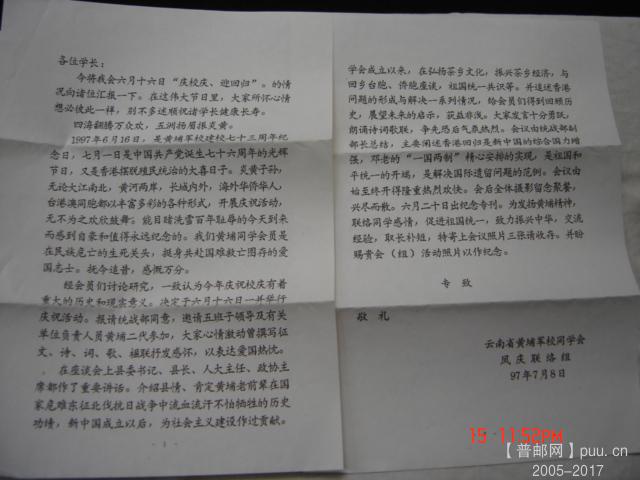 各位学长：
今将我会六月十六日“庆校庆、迎回归”。的情
况向诸位汇报一下。在这伟大节日里，大家所怀心情
想必彼此一样，别不多述顺祝诸学长健康长寿。
四海翻腾万众欢，五洲扬眉振炎黄。
1997年6月16日，是黄埔军校建校七十三周年纪
念日，七月一日是中国共产党诞生七十六周年的光辉
节日，又是香港摆脱殖民统治的大喜日子。炎黄子孙，
无论大江南北，黄河两岸，长城内外，海外华侨华人，
台港澳同胞都以丰富多彩的各种形式，开展庆祝活动，
无不为之欢欣鼓舞；能目睹洗雪百年耻辱的今天到来
而感到自豪和值得永远纪念的。我们黄埔同学会员是
在民族危亡的生死关头，挺身共赴国难救亡图存的爱
国志士。抚今追昔，感慨万分。
经会员们讨论研究，一致认为今年庆祝校庆有着
重大的历史和现实意义。决定于六月十六日一并举行
庆祝活动。报请统战部同意，邀请五班子领导及有关
单位负责人员黄埔二代参加，大家心情激动曾撰写征
文、诗、词、歌、楹联抒发感怀，以表达爱国热忱。
在座谈会上县委书记、县长、人大主任、政协主
席都作了重要讲话。介绍县情、肯定黄埔老前辈在国
家危难东征北伐抗日战争中流血流汗不怕牺牲的历史
功绩，新中国成立以后，为社会主义建设作过贡献。
- 1 -
学会成立以来，在弘扬茶乡文化，振兴茶乡经济，与
回乡台胞、侨胞座谈，祖国统一共识等。并追述香港
问题的形成与解决一系列情况，给会员们得到回顾历
史，展望未来的启示，获益非浅。大家发言十分勇跃，
朗诵诗词歌联，争先恐后气氛热烈。会议由统战部副
部长总结，主要阐述香港回归是新中国的综合国力增
强，邓老的“一国两制”精心安排的实现，是祖国和
平统一的开端，是解决国际遗留问题的范例。会议由
始至终开得隆重热烈欢快。会后全体摄影留念聚餐，
兴尽而散。六月二十日出纪念专刊。为发扬黄埔精神，
联络同学感情，促进祖国统一，致力振兴中华，交流
经验，取长补短，特寄上会议照片三张请收存。并盼
赐贵会（组）活动照片以作纪念。
专致
敬礼
云南省黄埔军校同学会
凤庆联络组
97年7月8日
15 11:52PM
【普邮网】puu.cn
2005-2017